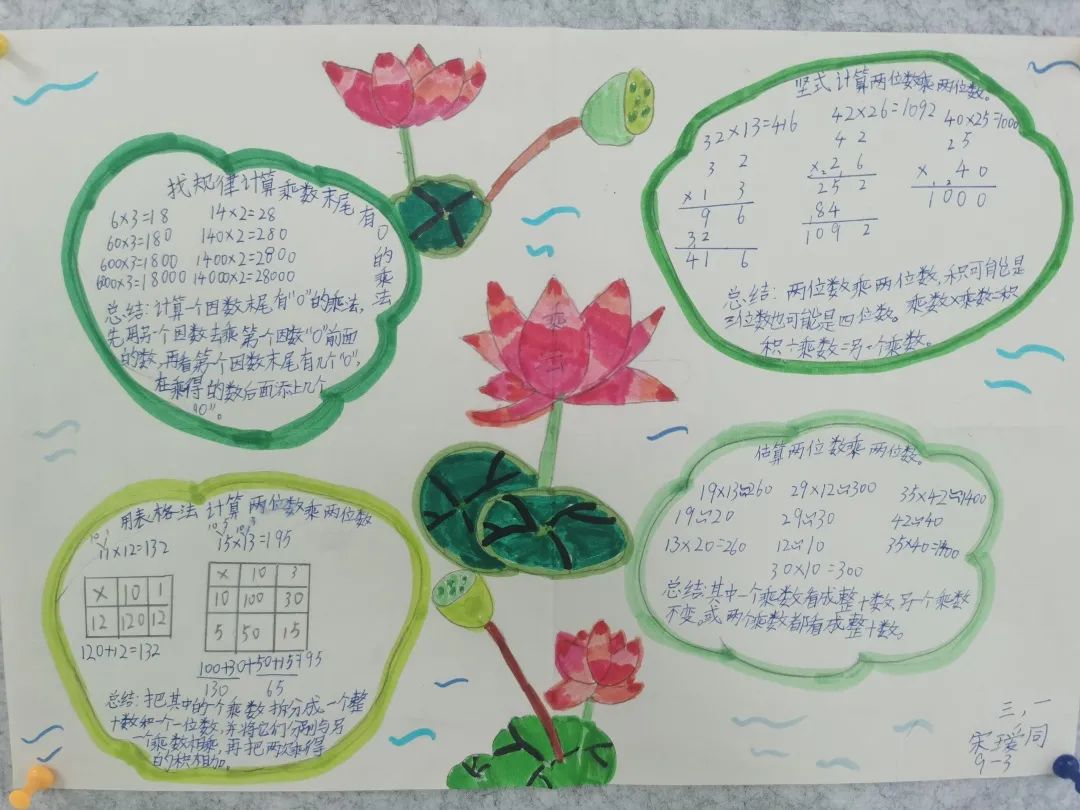 找规律计算乘数末尾有0的乘法
6×3=18 14×2=28
60×3=180 140×2=280
600×3=1800 1400×2=2800
6000×3=18000 14000×2=28000
总结:计算一个因数末尾有“0”的乘法,
先用另一个因数去乘第一个因数“0”前面
的数,再看第一个因数末尾有几个“0”,
在乘得的数后面添上几个
“0”。
竖式计算两位数乘两位数。
32×13=416 42×26=1092 40×25=1000
3 2
×1 3
9 6
3 2
4 1 6
4 2
×2 6
2 5 2
8 4
1 0 9 2
2 5
×4 0
1 0 0 0
总结:两位数乘两位数,积可能是
三位数也可能是四位数。乘数×乘数=积
积÷乘数=另一个乘数。
乘
云
用表格法计算两位数乘两位数
10 1
11×12=132
10 5 10 3
15×13=195
× 10 1
12 120 12
120+12=132
× 10 3
10 100 30
5 50 15
100+30+50+15=195
130 65
总结:把其中的个乘数拆分成一个整
十数和一个一位数,并将它们分别与另
一个乘数相乘,再把两次乘得
的积相加。
估算两位数乘两位数。
19×13≈260 29×12≈300 35×42≈1400
19≈20 29≈30 42≈40
13×20=260 12≈10 35×40=1400
30×10=300
总结:其中一个乘数看成整十数,另一个乘数
不变。或两个乘数都看成整十数。
三,一
宋瑷同
9-3